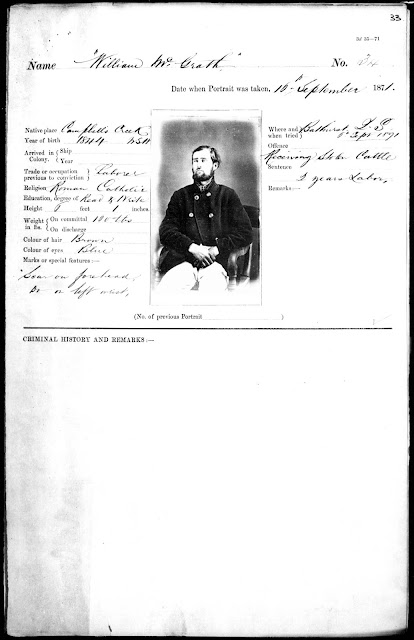 33
3d 55—71
Name "William McGrath" No. 34
Date when Portrait was taken, 16th September 1871.
Native place Campbells Creek
Year of birth 1844 N.S.W
Arrived in Colony. } Ship
Year
Trade or occupation previous to conviction } Laborer
Religion Roman Catholic
Education, degree of Read & Write
Height feet 1 inches
Weight in lbs. } On committal lbs
On discharge
Colour of hair Brown
Colour of eyes Blue
Marks or special features:—
Scar on forehead,
Do on left wrist,
Where and when tried } Bathurst
1871
Offence
Receiving Stolen Cattle
Sentence
2 years Labor,
Remarks:—
(No. of previous Portrait )
CRIMINAL HISTORY AND REMARKS:—